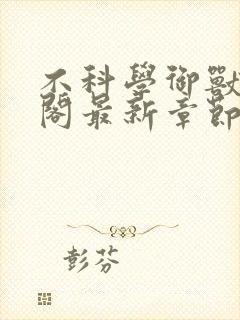 不科學御獸
閣最新章節
彭芬